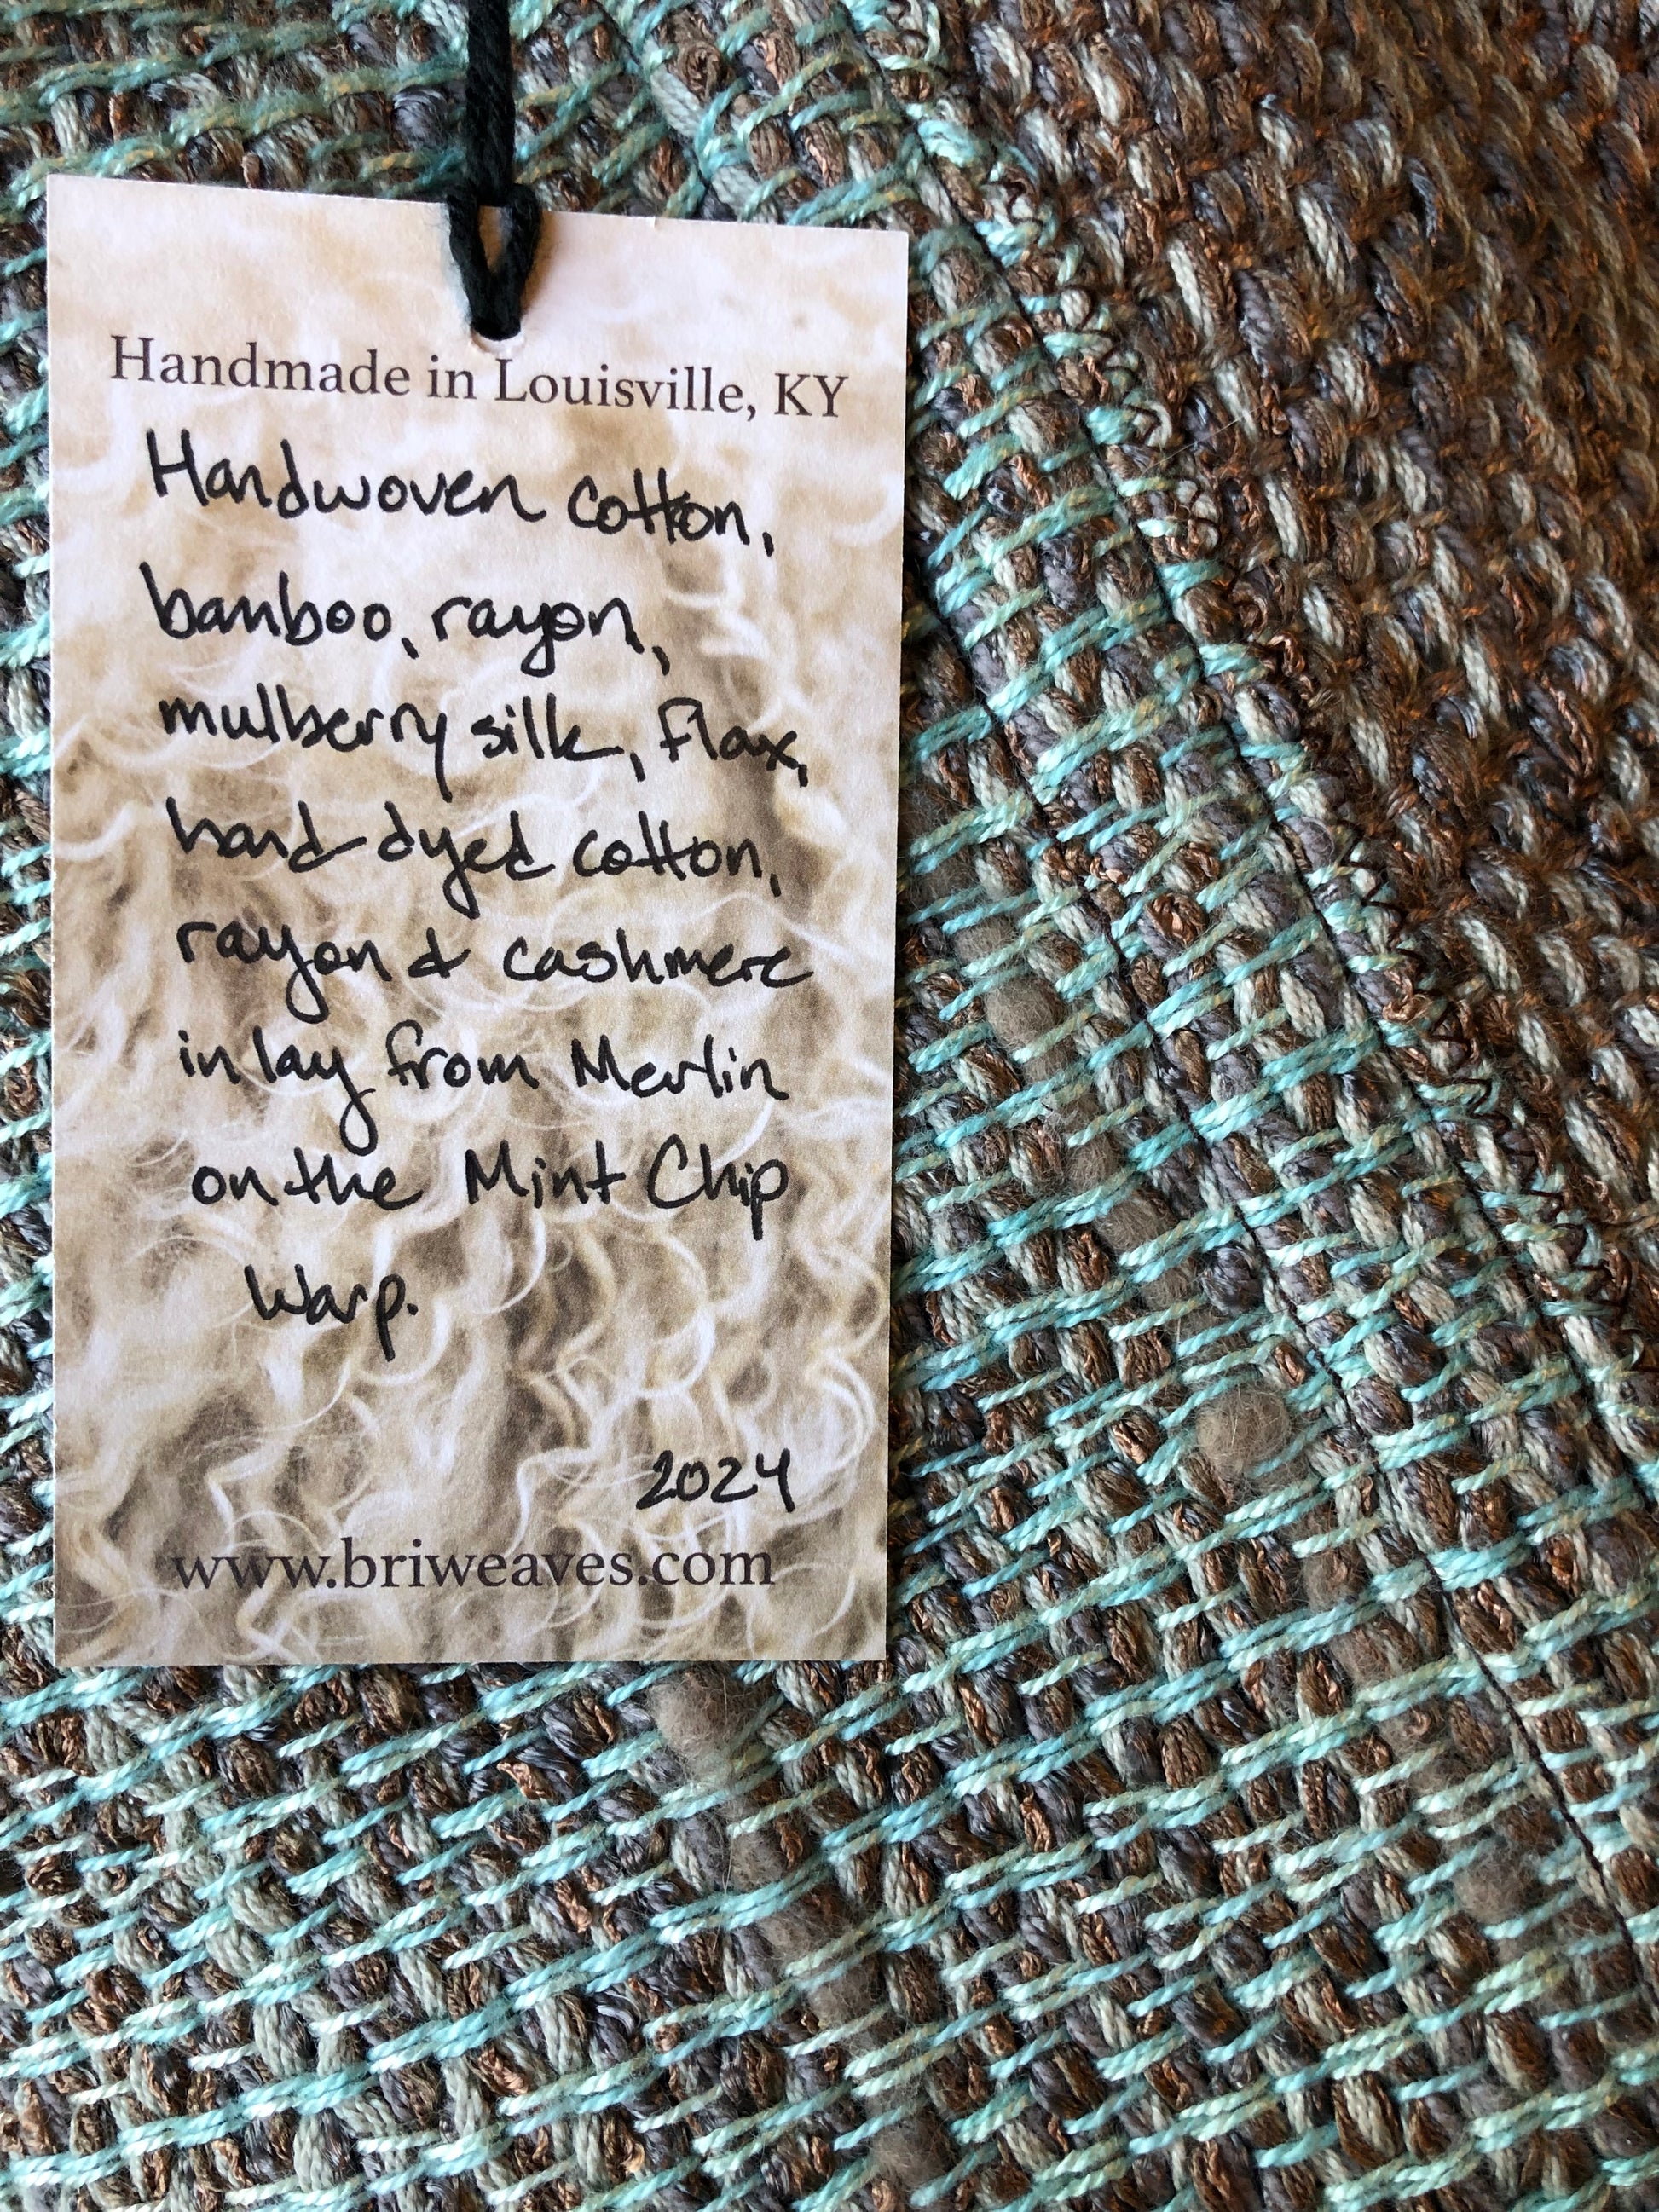 Handmade in Louisville, KY
Handwoven cotton,
bamboo, rayon,
mulberry silk, flax,
hand dyed cotton,
rayon & cashmere
inlay from Merlin
on the Mint Chip
Warp.
2024
www.briweaves.com